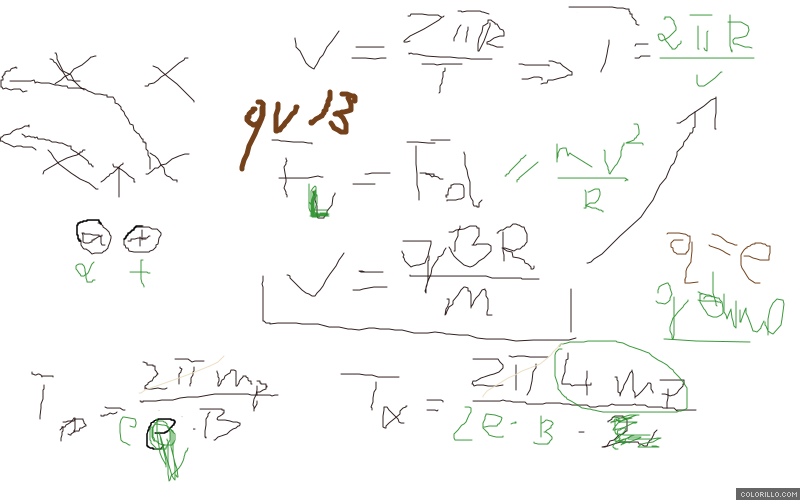 V = 2πR / T => T = 2πR / v
qvB
F_L = F_d // mv² / R
V = qBR / m
q = e
α +
T_p = 2π m_p / e · B
T_α = 2π 4 m_p / 2e · B
COLORILLO.COM